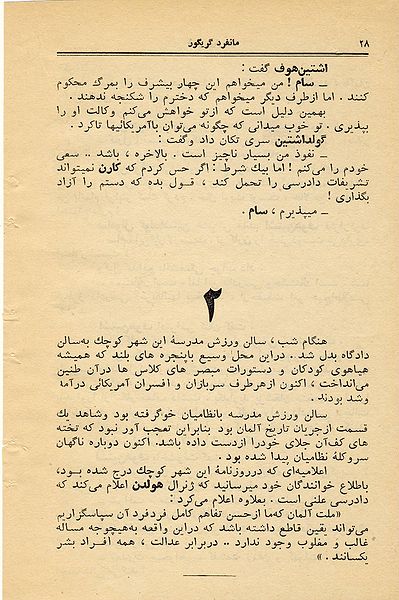 ۲۸
مانفرد گریگور
اشتین‌هوف گفت :
ــ سام ! من میخواهم این چهار بیشرف را بمرگ محکوم
کنند . اما ازطرف دیگر میخواهم که دخترم را شکنجه ندهند .
بهمین دلیل است که ازتو خواهش می‌کنم وکالت او را
بپذیری . تو خوب میدانی که چگونه می‌توان باآمریکائیها تاکرد .
گولداشتین سری تکان داد وگفت :
ــ نفوذ من بسیار ناچیز است . بالاخره ، باشد .. سعی
خودم را می‌کنم ! اما بیك شرط : اگر حس کردم که کارن نمیتواند
تشریفات دادرسی را تحمل کند ، قـول بده که دستم را آزاد
بگذاری !
ــ میپذیرم ، سام .
۲
هنگام شب ، سالن ورزش مدرسهٔ این شهر کوچك به‌سالن
دادگاه بدل شد . دراین محل وسیع باپنجره های بلند که همیشه
هیاهوی کودکان و دستورات مبصر های کلاس ها درآن طنین
می‌انداخت ، اکنون ازهرطرف سربازان و افسران آمریکائی درآمد
وشد بودند .
سالن ورزش مدرسه بانظامیان خوگرفته بود وشاهد یك
قسمت ازجریان تاریخ آلمان بود بنابراین تعجب آور نبود که تخته
های کف‌آن جلای خودرا ازدست داده باشد. اکنون دوباره ناگهان
سروکلهٔ نظامیان پیدا شده بود .
اعلامیه‌ای که درروزنامهٔ این شهر کوچك درج شده بـود،
باطلاع خوانندگان خود میرسانید که ژنرال هولدن اعلام می‌کند که
دادرسی علنی است . بعلاوه اعلام می‌کرد :
«ملت آلمان که‌ما ازحسن تفاهم کامل فردفرد آن سپاسگزاریم
می‌تواند یقین قاطع داشته باشد که دراین واقعه به‌هیچوجه مساله
غالب و مغلوب وجود ندارد .. دربرابر عدالت ، همه افـراد بشر
یکسانند . »